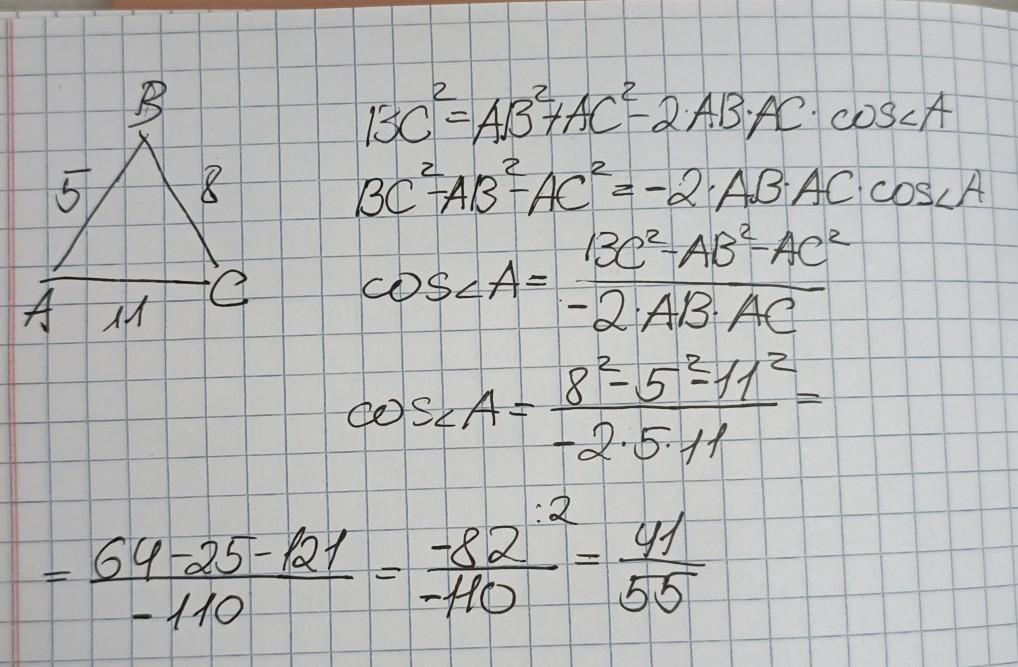 B
5 8
A 11 C
BC² = AB² + AC² - 2·AB·AC·cos∠A
BC² - AB² - AC² = -2·AB·AC·cos∠A
cos∠A = (BC² - AB² - AC²) / (-2·AB·AC)
cos∠A = (8² - 5² - 11²) / (-2·5·11) =
= (64 - 25 - 121) / (-110) = (-82) / (-110) :2 = 41/55